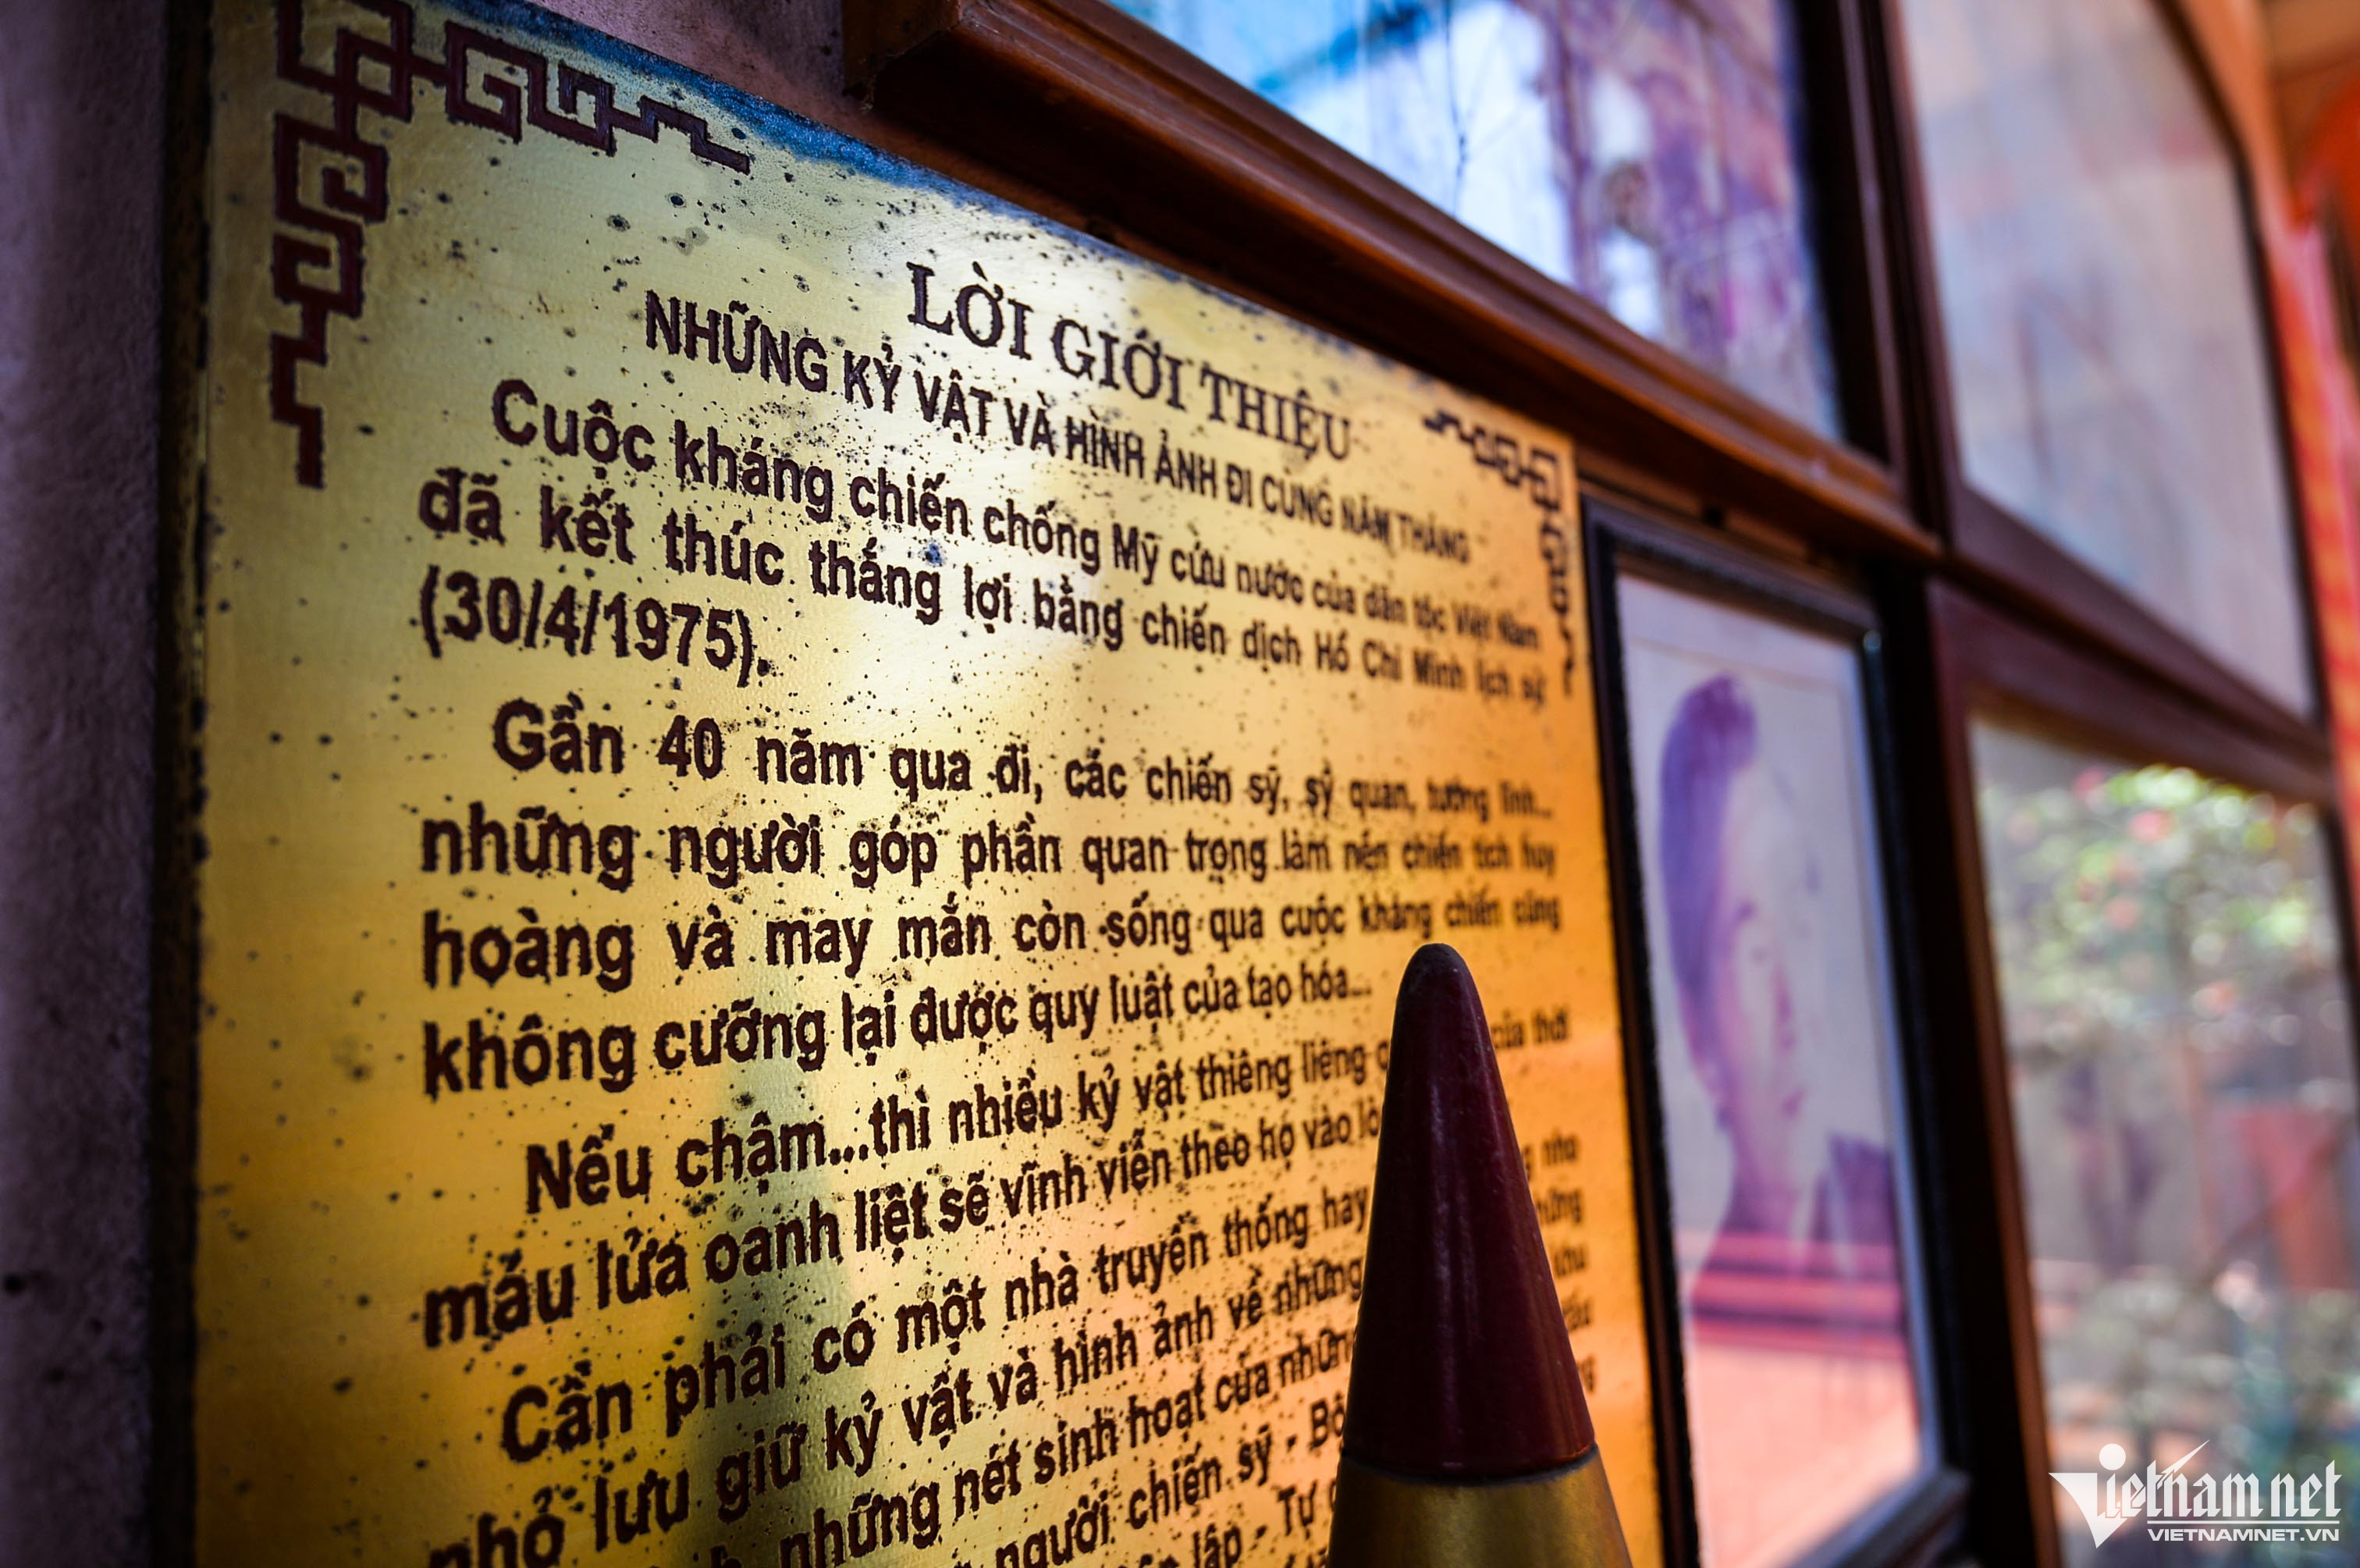 LỜI GIỚI THIỆU
NHỮNG KỶ VẬT VÀ HÌNH ẢNH ĐI CÙNG NĂM THÁNG
Cuộc kháng chiến chống Mỹ cứu nước của dân tộc Việt Nam
đã kết thúc thắng lợi bằng chiến dịch Hồ Chí Minh lịch sử
(30/4/1975).
Gần 40 năm qua đi, các chiến sỹ, sỹ quan, tướng lĩnh...
những người góp phần quan trọng làm nên chiến tích huy
hoàng và may mắn còn sống qua cuộc kháng chiến cũng
không cưỡng lại được quy luật của tạo hóa...
Nếu chậm...thì nhiều kỷ vật thiêng liêng của thời
máu lửa oanh liệt sẽ vĩnh viễn theo họ vào
Cần phải có một nhà truyền thống hay nho
nhỏ lưu giữ kỷ vật và hình ảnh về những
những nét sinh hoạt của những
người chiến sỹ - Bộ
lập - Tự
Vietnamnet
VIETNAMNET.VN